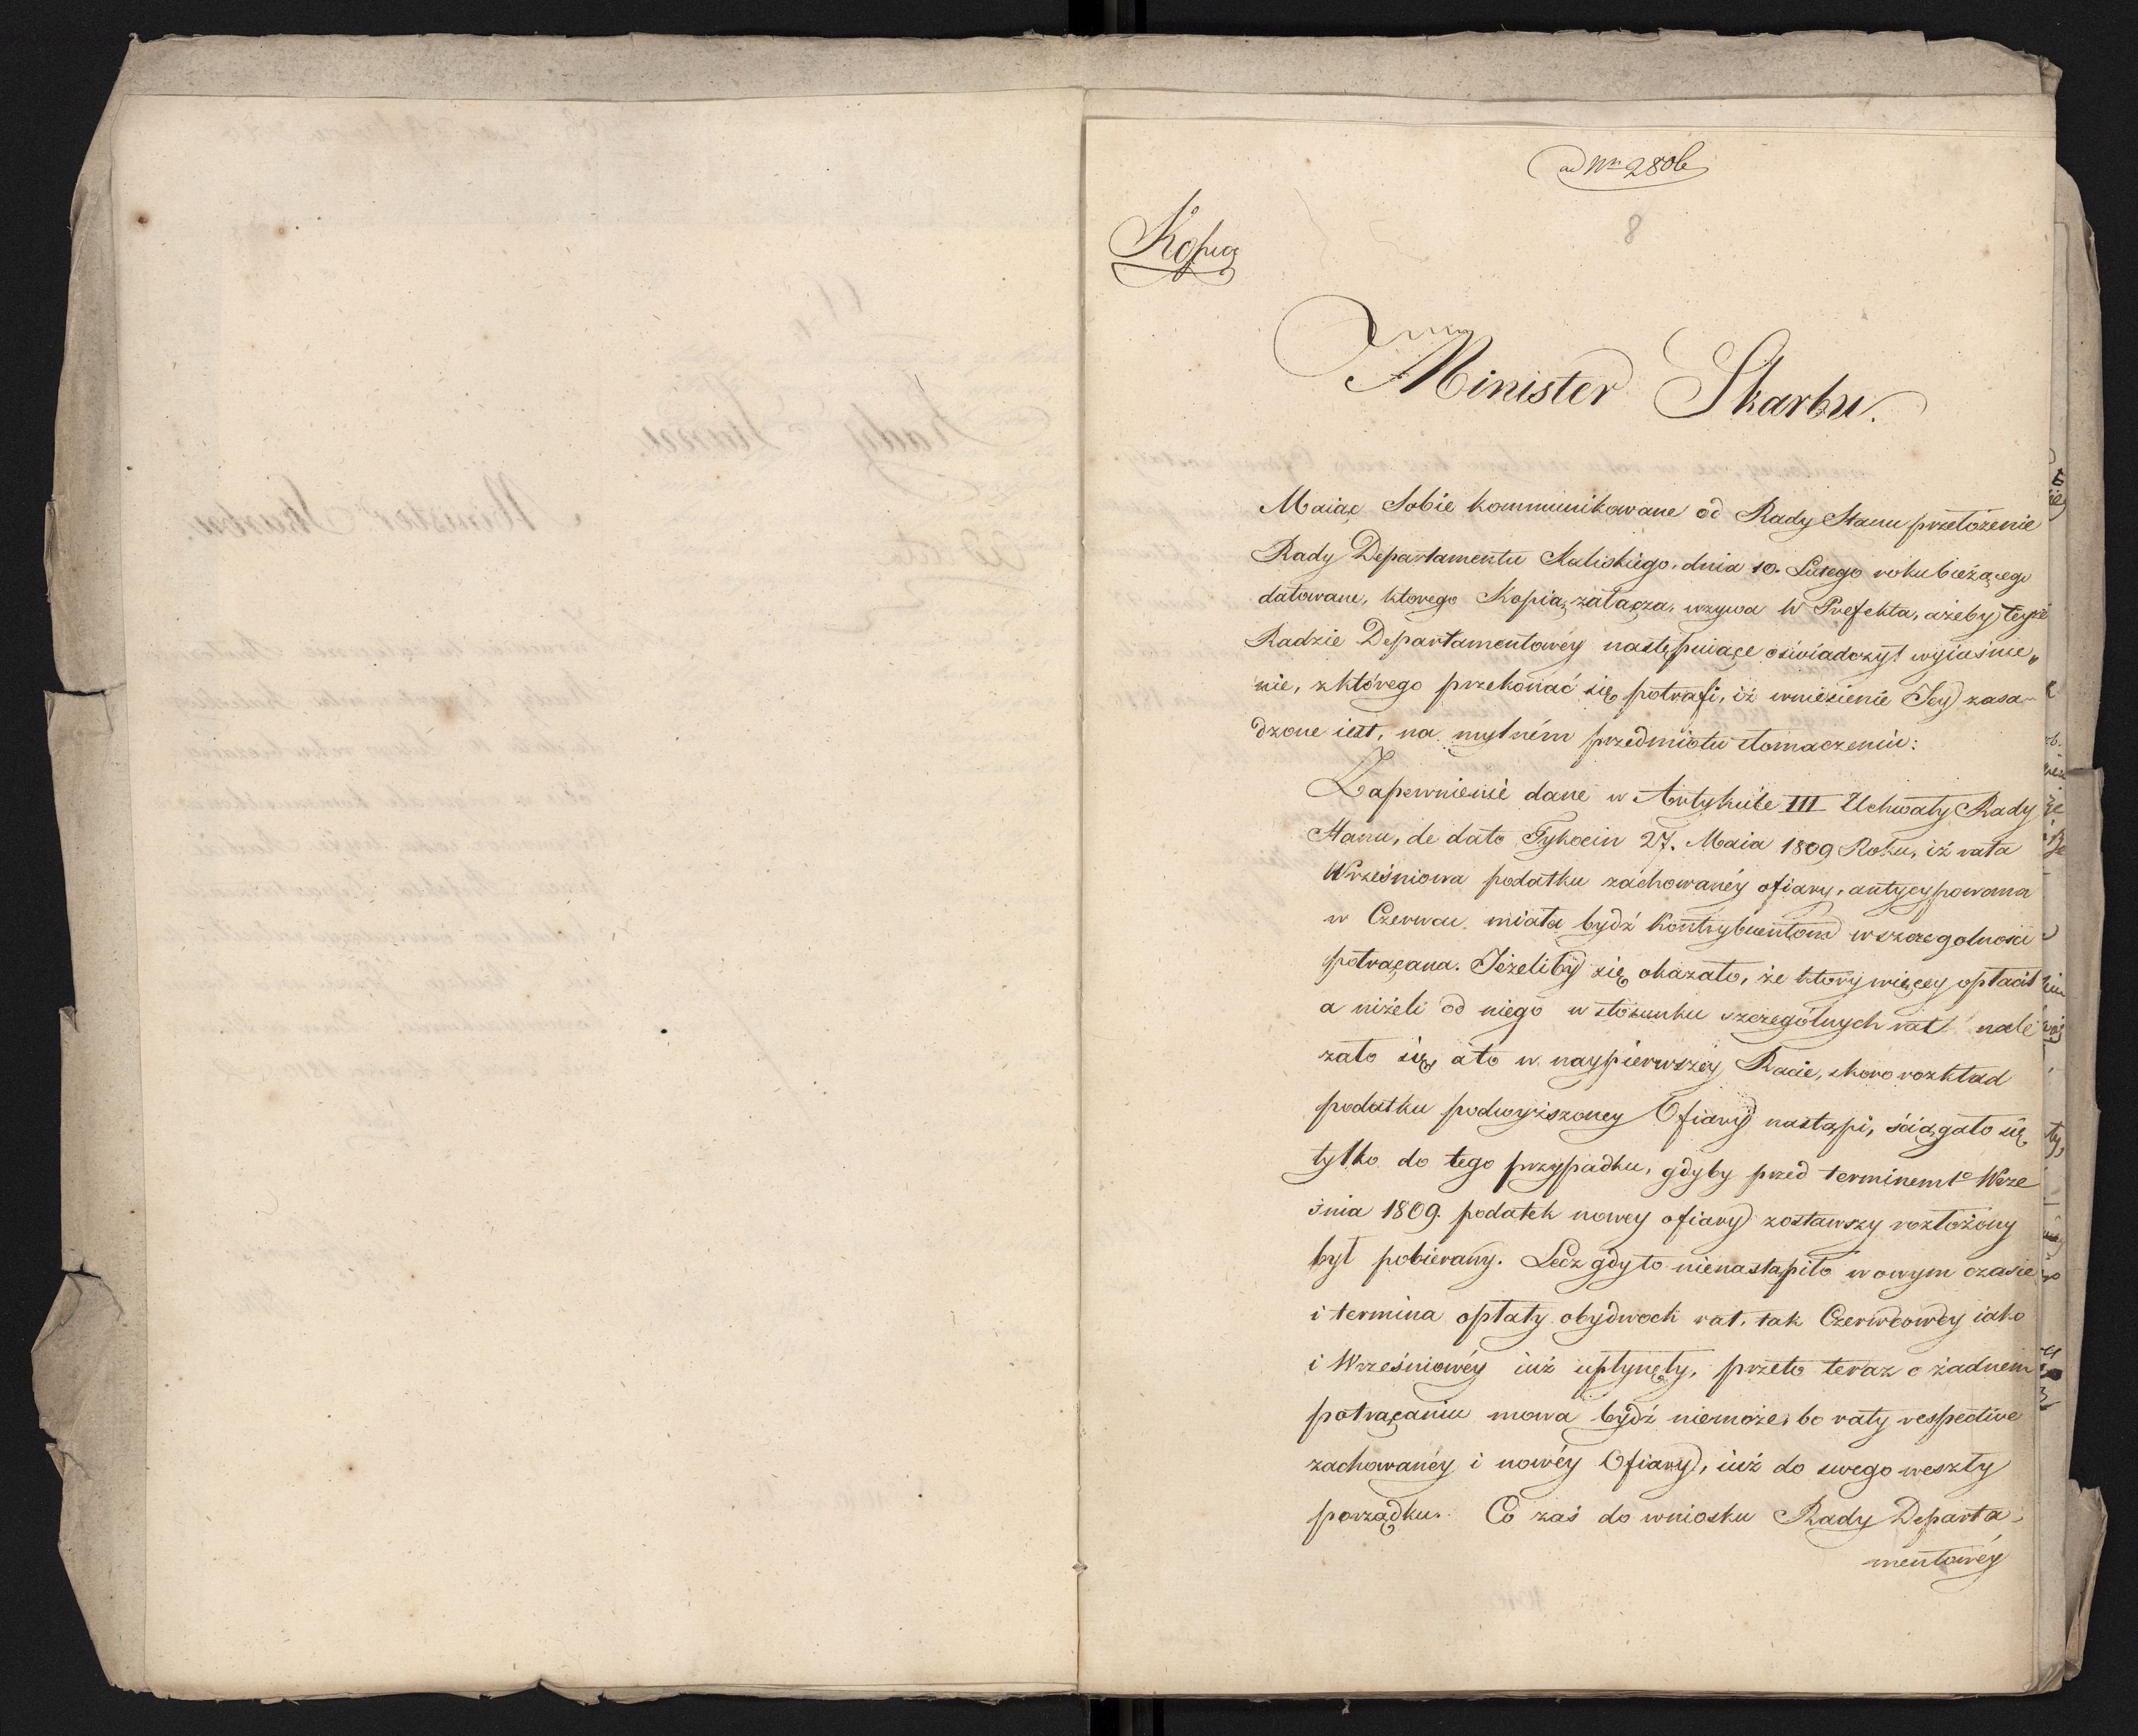 ad Nrm 2806
8
Kopia
Minister Skarbu.
Maiąc Sobie kommunikowane od Rady Stanu przełożenie
Rady Departamentu Kaliskiego, dnia 10. Lutego roku bieżącego
datowane, ktorego Kopia załącza, wzywa W Prefekta, ażeby teyże
Radzie Departamentowéy następuiące oświadczył wyiaśnie„
nie, z którego przekonać się potrafi, iż wniesienie Jey zasa-
dzone iest, na mylném przedmiotu tłomaczeniu:
Zapewnienie dane w Artykule III Uchwały Rady
Stanu, de dato Tykocin 27. Maia 1809 Roku, iż rata
Wrześniowa podatku zachowanéy ofiary, antycypowana
w Czerwcu, miała bydź Kontrybuentom w szczegolności
potrącana. Jeżeliby się okazało, że ktory więcey opłacił
a niżeli od niego w stosunku szczególnych rat nale
żało się, a to w naypierwszéy Racie, skoro rozkład
podatku podwyższoney Ofiary nastąpi, ściągało się
tylko do tego przypadku, gdyby przed terminem 1o Wrze
śnia 1809. podatek nowey ofiary zostawszy rozłożony
był pobierany. Lecz gdy to nienastąpiło w owym czasie
i termina opłaty obydwoch rat, tak Czerwcowéy iako
i Wrześniowéy iuż upłynęły, przeto teraz o żadnem
potrącaniu mowa bydź niemoże, bo raty respective
zachowanéy i nowéy Ofiary, iuż do swego weszły
porządku. Co zaś do wniosku Rady Departa-
mentowéy